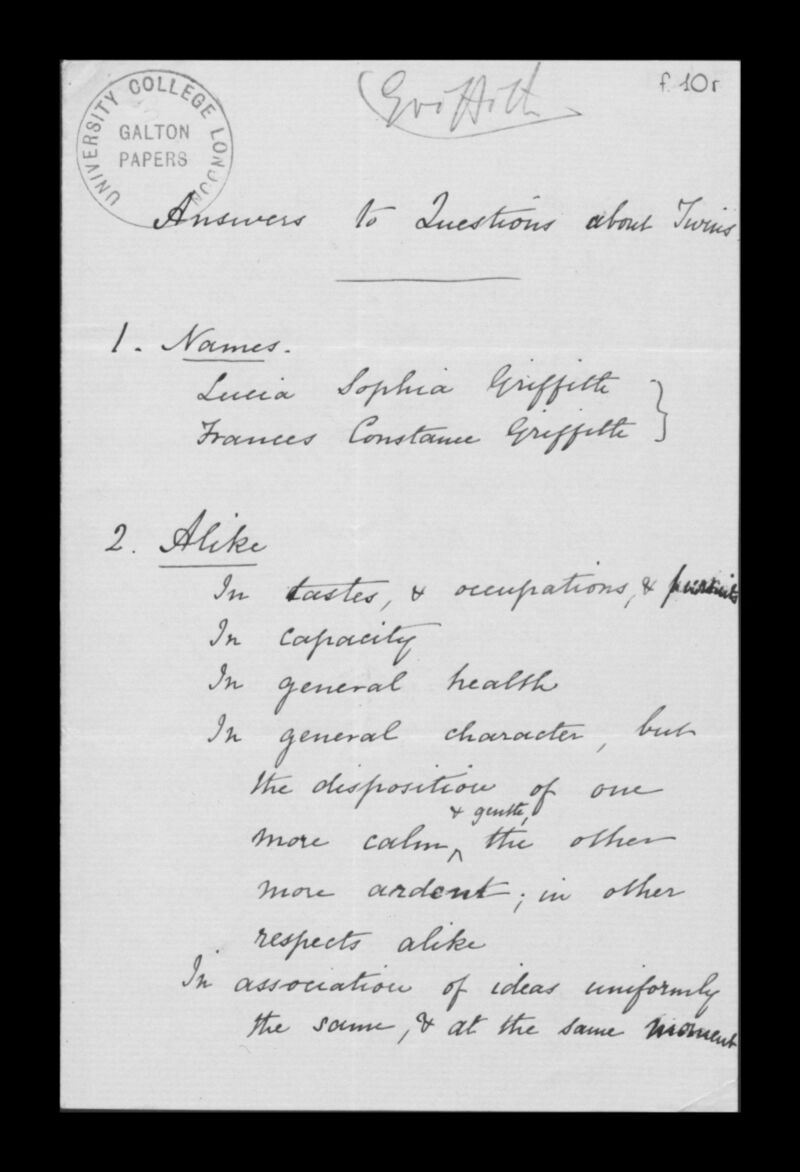 Griffith
f. 10r
UNIVERSITY COLLEGE LONDON
GALTON
PAPERS
Answers to Questions about Twins.
1. Names.
Lucia Sophia Griffith
Frances Constance Griffith }
2. Alike
In tastes, & occupations, & pursuits
In capacity
In general health
In general character, but
the disposition of one
& gentle,
more calm, ^ the other
more ardent; in other
respects alike
In association of ideas uniformly
the same, & at the same moment